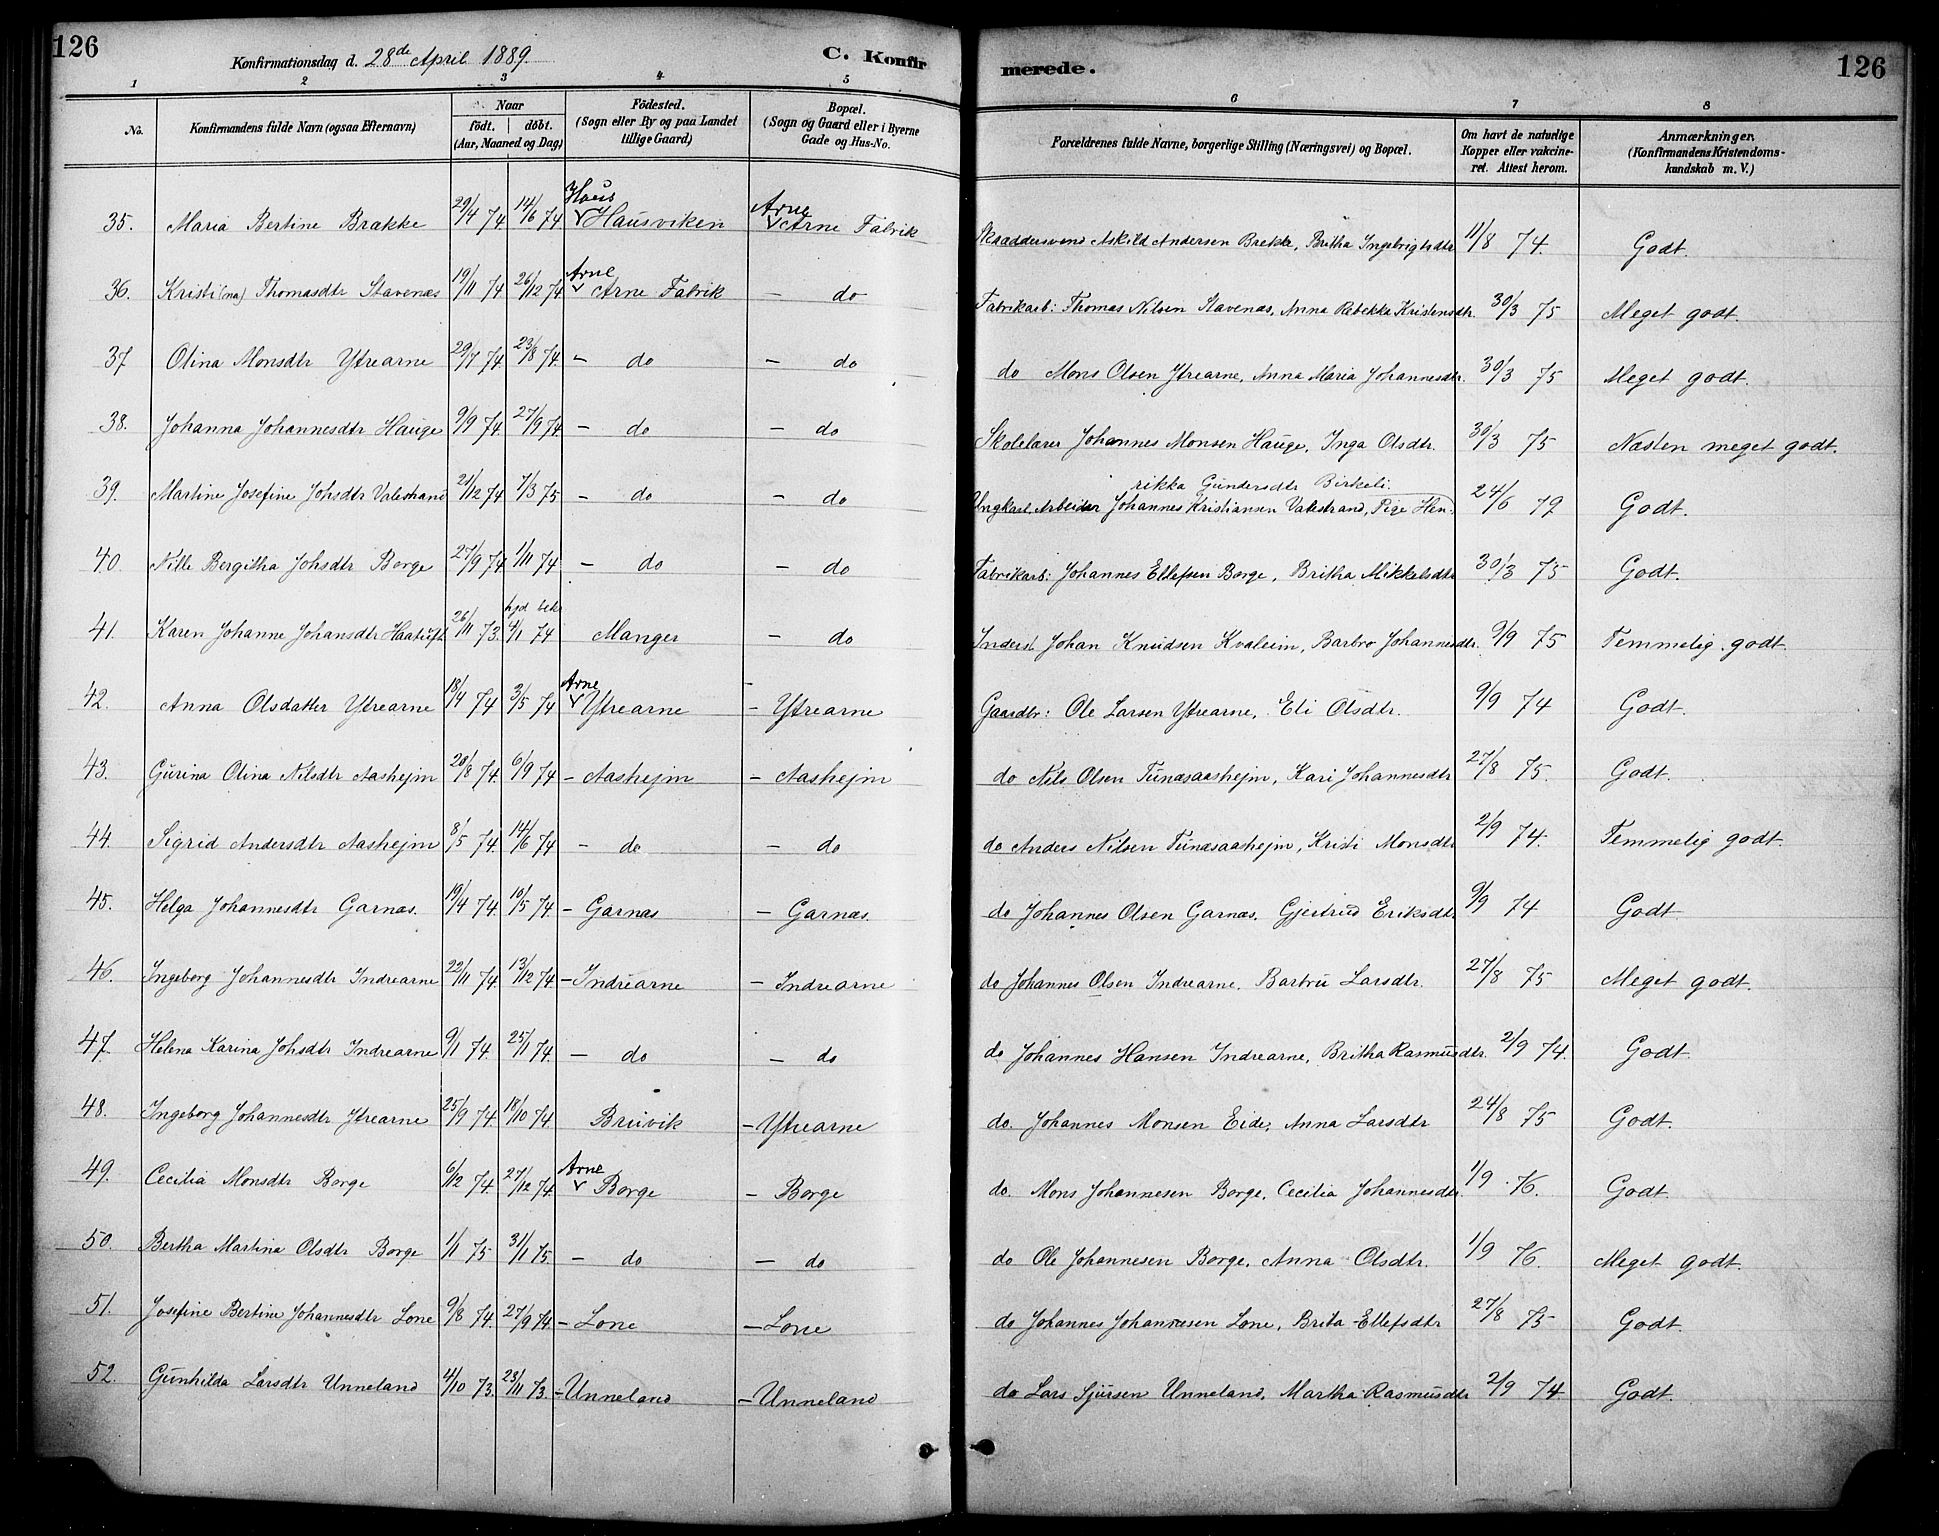 126
Konfirmationsdag d. 28de April 1889.
C. Konfirmerede.
126
1 2 3 4 5 6 7 8
No.
Konfirmandens fulde Navn (ogsaa Efternavn)
Naar födt. döbt. (Aar, Maaned og Dag)
Födested. (Sogn eller By og paa Landet tillige Gaard)
Bopæl. (Sogn og Gaard eller i Byerne Gade og Hus-No.
Forældrenes fulde Navne, borgerlige Stilling (Næringsvei) og Bopæl.
Om havt de naturlige Kopper eller vakcineret. Attest herom.
Anmærkninger. (Konfirmandens Kristendomskundskab m. V.)
35. Maria Bertine Brække 29/4 74 14/6 74 Haus v Hausviken Arne v Arne Fabrik Skræddersvend Askild Andersen Brekke, Britha Ingebrigtsdtr 11/8 74. Godt.
36. Kristi(na) Thomasdtr Stavenæs 19/11 74 26/12 74 Arne v Arne Fabrik - do Fabrikarb: Thomas Nilsen Stavenæs, Anna Rebekka Kristensdtr. 30/3 75 Meget godt.
37 Olina Monsdtr Ytrearne 29/7 74. 23/8 74. - do - do do Mons Olsen Ytrearne, Anna Maria Johannesdtr. 30/3 75 Meget godt.
38. Johanna Johannesdtr Hauge 9/9 74. 27/9 74 - do - do Skolelærer Johannes Monsen Hauge, Inga Olsdtr. 30/3 75 Næsten meget godt.
39. Martine Josefine Johsdtr Valestrand 21/12 74 7/3 75 - do - do Ungkarl, Arbeider Johannes Kristiansen Valestrand, Pige Henrikka Gundersdtr Birkeli. 24/6 79 Godt.
40. Nille Bergitha Johsdtr Borge 27/9 74 1/11 74 - do - do Fabrikarb: Johannes Ellefsen Borge, Britha Mikkelsdtr 30/3 75 Godt.
41. Karen Johanne Johansdtr Haatuft 26/11 73. hjd bekr 4/1 74 Manger - do Inderst Johan Knudsen Kvaleim, Barbro Johannesdtr. 9/9 75 Temmelig godt.
42. Anna Olsdatter Ytrearne 18/4 74 3/5 74 Arne v Ytrearne - Ytrearne Gaardbr: Ole Larsen Ytrearne, Eli Olsdtr. 9/9 74 Godt.
43. Gurina Olina Nilsdtr Aashejm 20/8 74. 6/9 74 - Aashejm - Aashejm do Nils Olsen Tunæsaashejm, Kari Johannesdtr 27/8 75. Godt.
44. Sigrid Andersdtr Aashejm 8/5 74. 14/6 74 - do - do do Anders Nilsen Tunæsaashejm, Kristi Monsdtr 2/9 74. Temmelig godt.
45. Helga Johannesdtr Garnæs. 19/4 74. 10/5 74. - Garnæs - Garnæs. do Johannes Olsen Garnæs. Gjertrud Eriksdtr 9/9 74 Godt
46. Ingeborg Johannesdtr Indrearne 22/11 74. 13/12 74 - Indrearne - Indrearne do Johannes Olsen Indrearne. Barbru Larsdtr. 27/8 75 Meget godt.
47. Helena Karina Johsdtr Indrearne 9/1 74. 25/1 74. - do - do do Johannes Hansen Indrearne, Britha Rasmusdtr. 2/9 74. Godt.
48. Ingeborg Johannesdtr Ytrearne 25/9 74. 18/10 74 Bruvik - Ytrearne do. Johannes Monsen Eide, Anna Larsdtr 24/8 75 Godt.
49. Cecilia Monsdtr Borge 6/12 74. 27/12 74 Arne v Borge - Borge do. Mons Johannesen Borge, Cecilia Johannesdtr 1/9 76. Godt
50. Bertha Martina Olsdtr Borge 1/1 75 31/1 75. - do - do do Ole Johannesen Borge, Anna Olsdtr. 1/9 76. Meget godt.
51. Josefine Bertine Johannesdtr Lone 9/8 74. 27/9 74. - Lone - Lone do Johannes Johannesen Lone, Brita Ellefsdtr 27/8 75 Godt.
52. Gunhilda Larsdtr Unneland 4/10 73. 23/11 73. - Unneland - Unneland do Lars Sjursen Unneland, Martha Rasmusdtr 2/9 74. Godt.